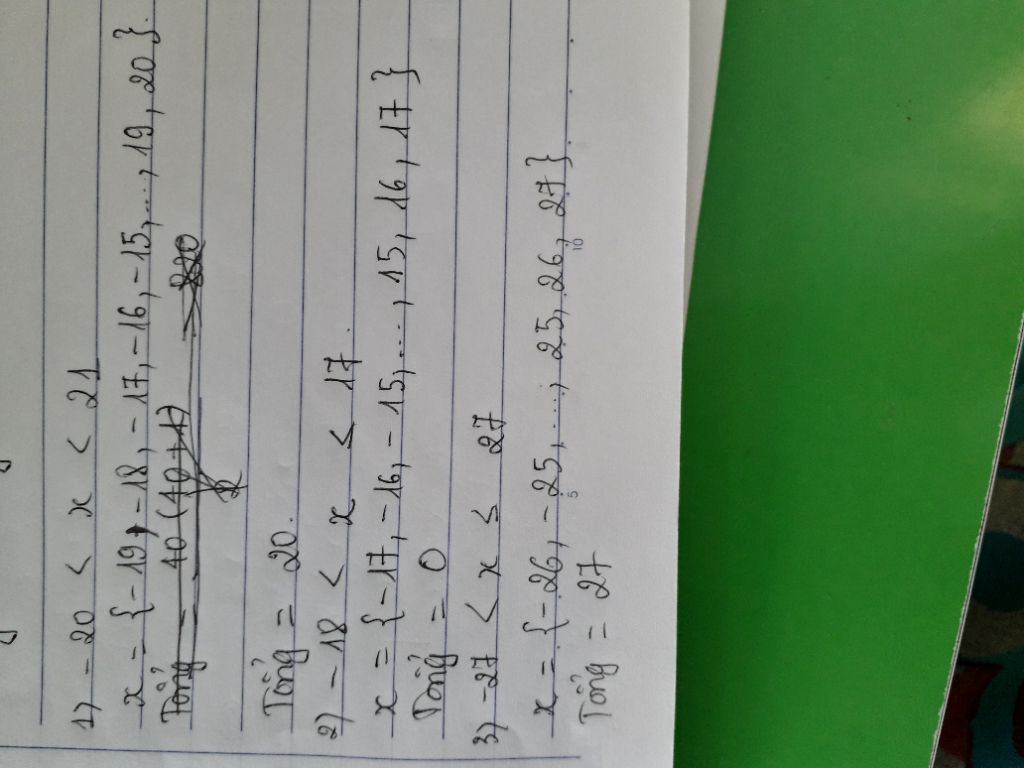 1) -20 < x < 21
x = {-19, -18, -17, -16, -15, ..., 19, 20}.
Tổng = 40 (40 + 1) = 820
2
Tổng = 20.
2) -18 < x ≤ 17.
x = {-17, -16, -15, ..., 15, 16, 17}
Tổng = 0
3) -27 < x ≤ 27
x = {-26, -25, ..., 25, 26, 27}.
5 10
Tổng = 27